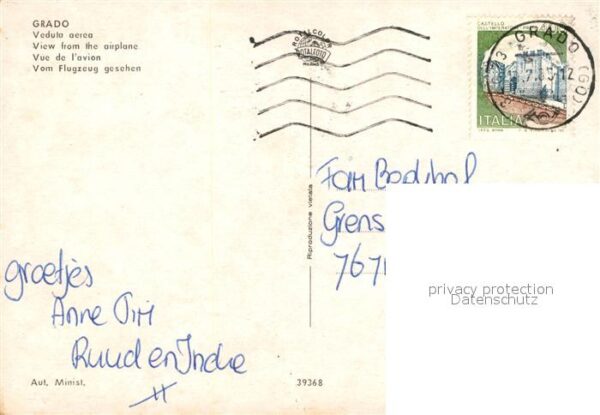 GRADO
Veduta aerea
View from the airplane
Vue de l'avion
Vom Flugzeug gesehen
ROTALCOLOR
ROTALFOTO
MILANO
CASTELLO
ITALIA
34073 GRADO (GO)
Fam
Grens
767
Riproduzione vietata
privacy protection
Datenschutz
groetjes
Anne Pim
Ruud en Ineke
Aut. Minist.
39368